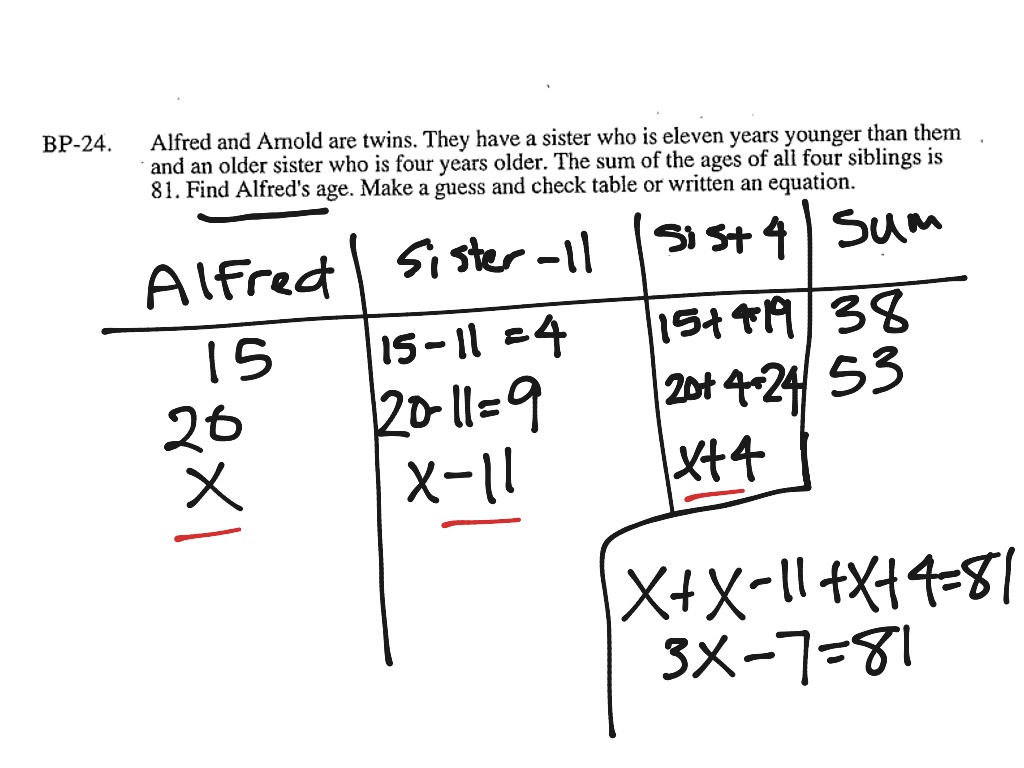 BP-24. Alfred and Arnold are twins. They have a sister who is eleven years younger than them
and an older sister who is four years older. The sum of the ages of all four siblings is
81. Find Alfred's age. Make a guess and check table or written an equation.
Alfred Sister -11 Sis+4 Sum
15 15-11=4 15+4=19 38
20 20-11=9 20+4=24 53
x x-11 x+4
x+x-11+x+4=81
3x-7=81